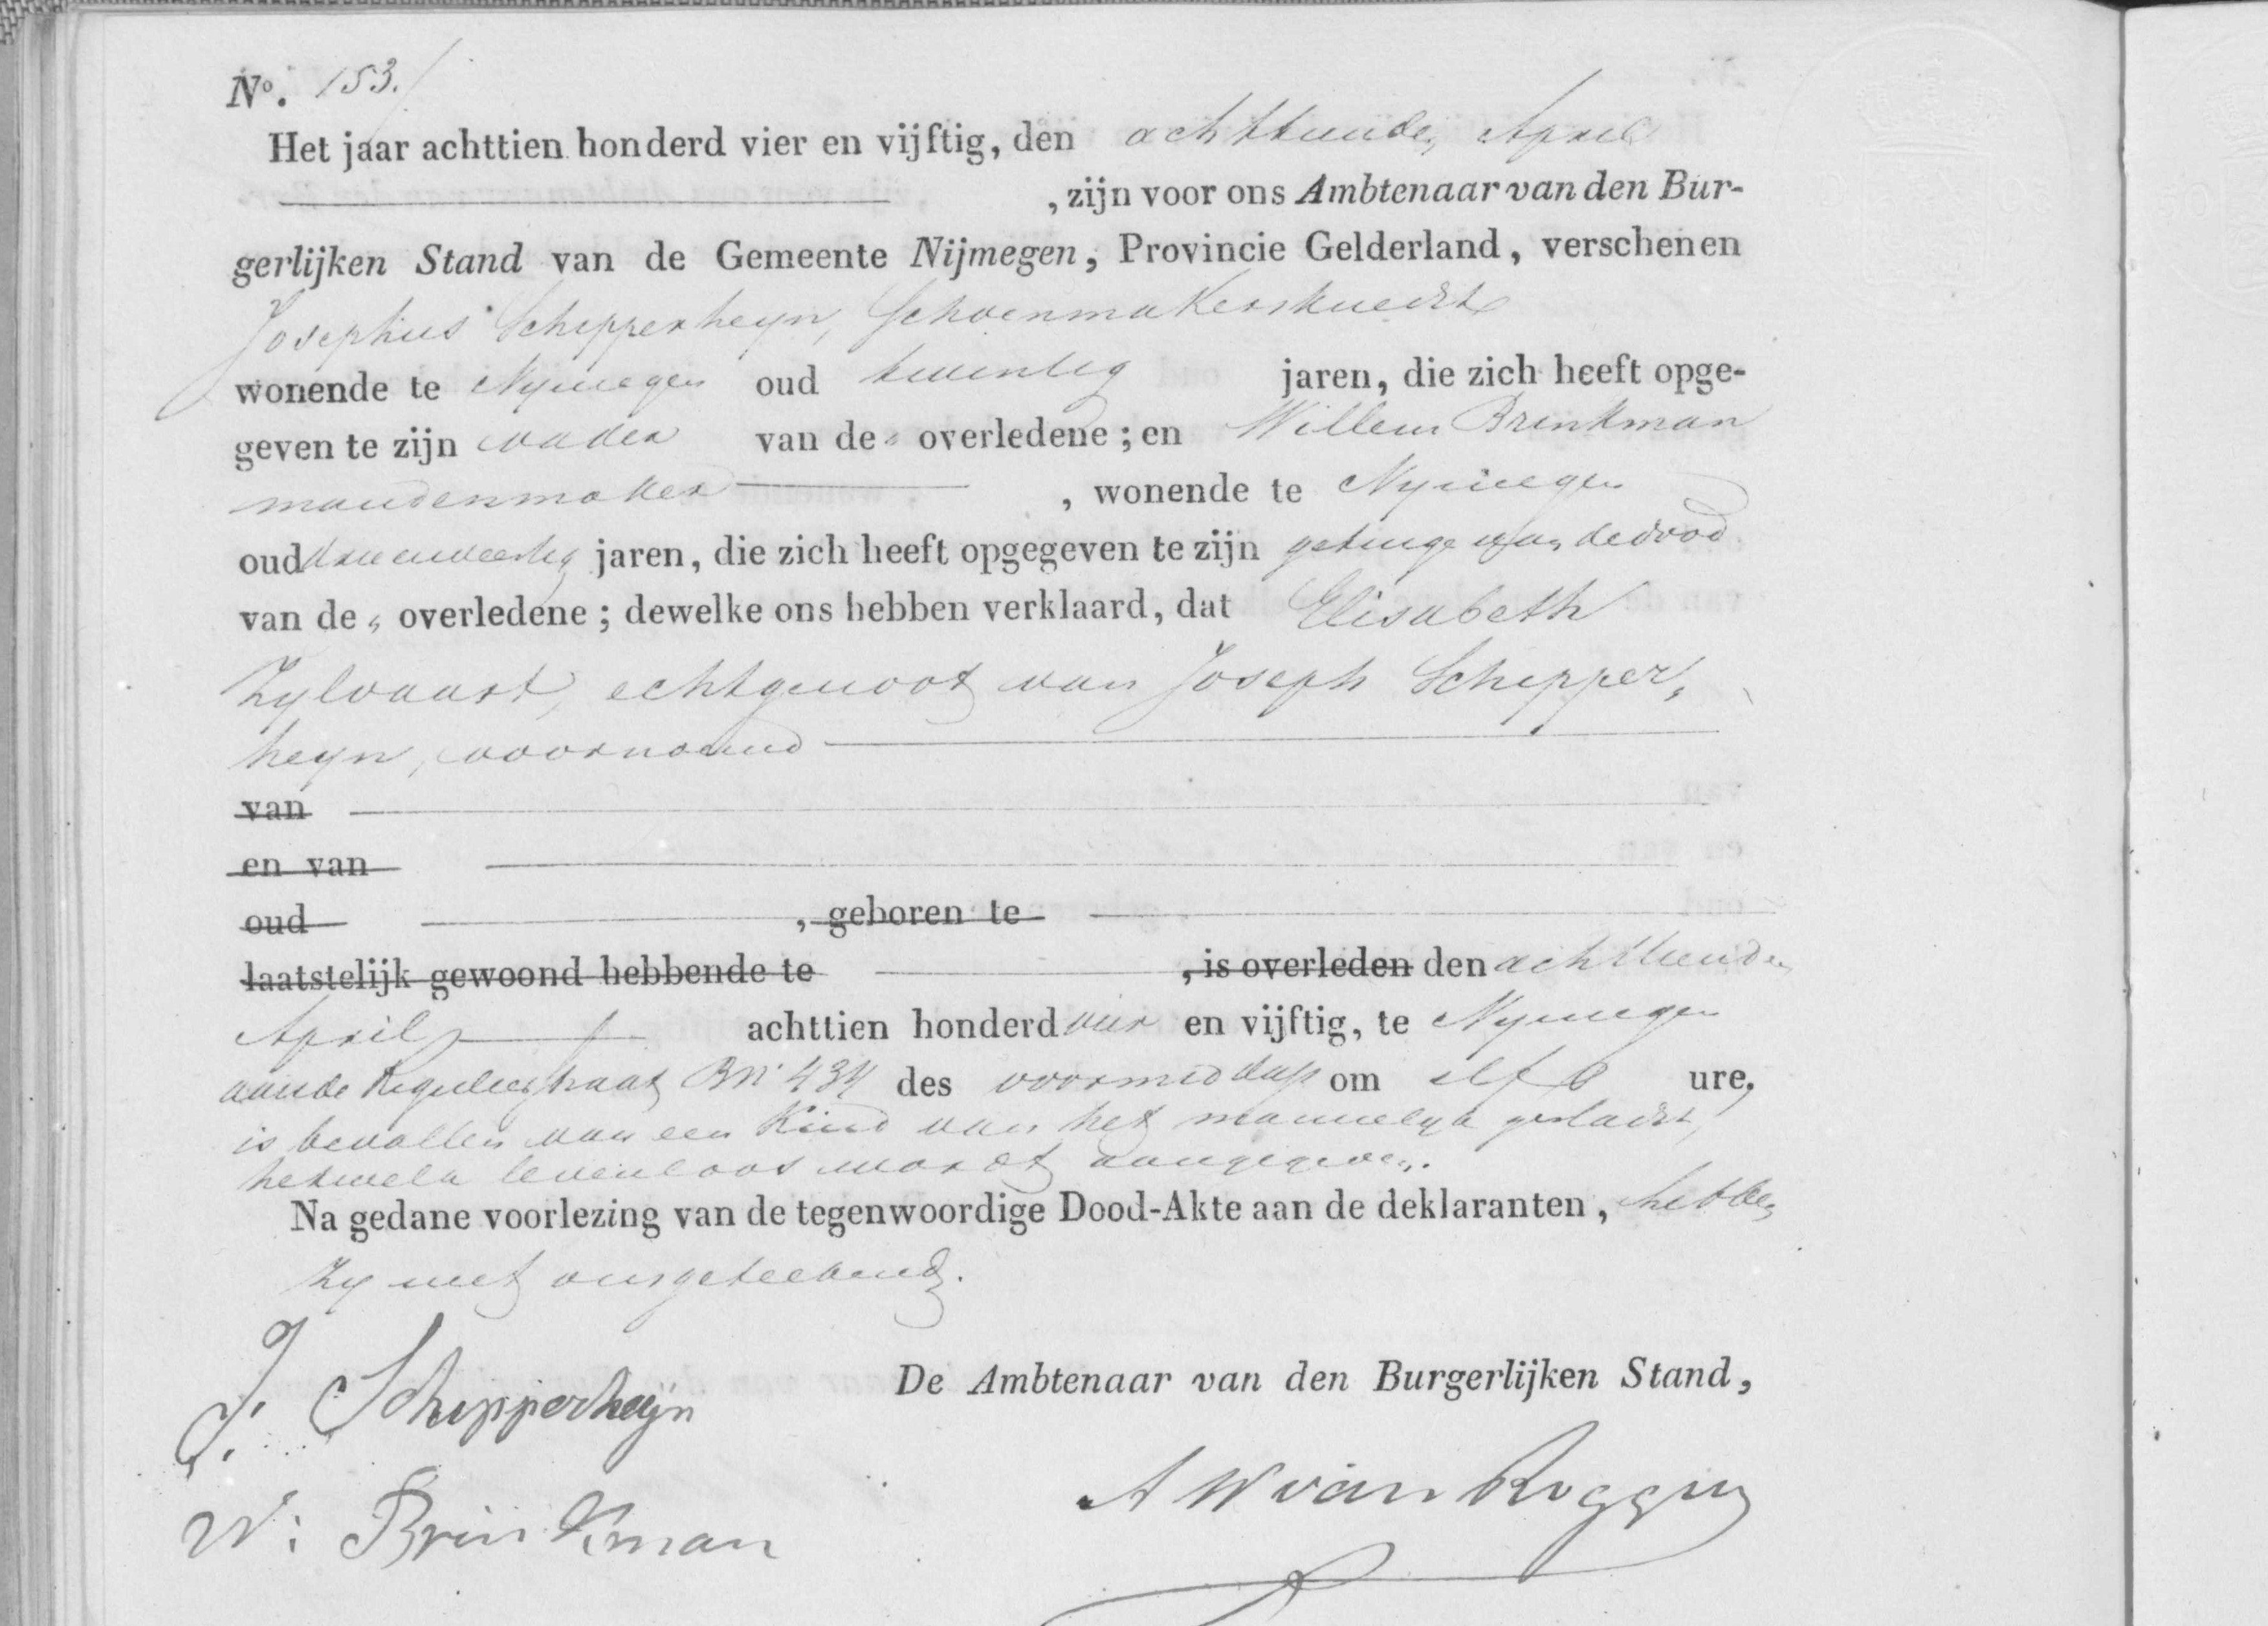 No. 153.
Het jaar achttien honderd vier en vijftig, den achttienden April
, zijn voor ons Ambtenaar van den Bur-
gerlijken Stand van de Gemeente Nijmegen, Provincie Gelderland, verschenen
Josephus Schipperheyn, Schoenmakersknecht
wonende te Nymegen oud twintig jaren, die zich heeft opge-
geven te zijn vader van de overledene; en Willem Brinkman
mandenmaker, wonende te Nymegen
oud drieenveertig jaren, die zich heeft opgegeven te zijn getuige van de dood
van de overledene; dewelke ons hebben verklaard, dat Elisabeth
Zylvaart, echtgenoot van Joseph Schipper,
heyn, voornoemd
van
en van
oud , geboren te
laatstelijk gewoond hebbende te , is overleden den achttienden
April achttien honderd vier en vijftig, te Nymegen
aan de Regulierstraat B No 434 des voormiddags om elf ure,
is bevallen van een Kind van het mannelyk geslacht,
hetwelk levenloos wordt aangegeven.
Na gedane voorlezing van de tegenwoordige Dood-Akte aan de deklaranten, hebben
zy met ons geteekend.
J. Schipperheijn
De Ambtenaar van den Burgerlijken Stand,
A W van Roggen
W: Brinkman